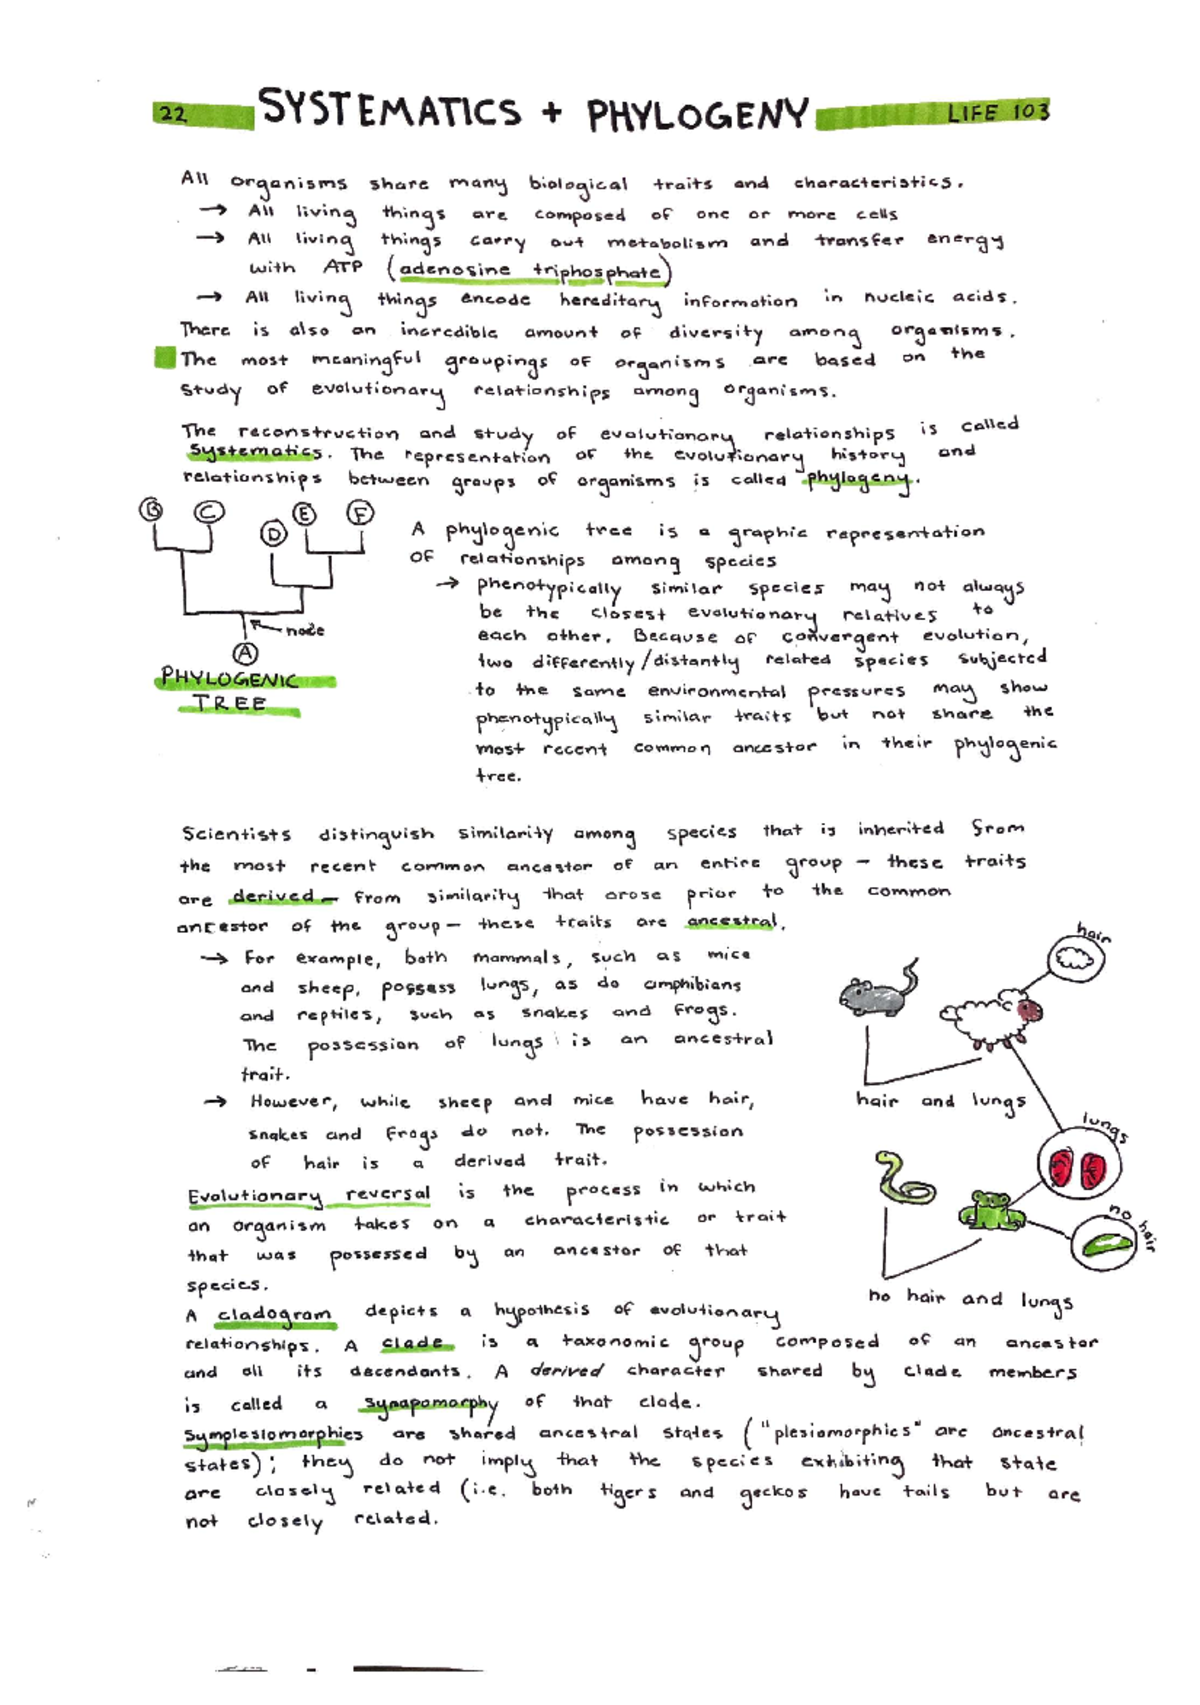 22 SYSTEMATICS + PHYLOGENY LIFE 103
All organisms share many biological traits and characteristics.
→ All living things are composed of one or more cells
→ All living things carry out metabolism and transfer energy
with ATP (adenosine triphosphate)
→ All living things encode hereditary information in nucleic acids.
There is also an incredible amount of diversity among organisms.
The most meaningful groupings of organisms are based on the
study of evolutionary relationships among organisms.
The reconstruction and study of evolutionary relationships is called
Systematics. The representation of the evolutionary history and
relationships between groups of organisms is called phylogeny.
B C D E F
node
A
PHYLOGENIC
TREE
A phylogenic tree is a graphic representation
of relationships among species
→ phenotypically similar species may not always
be the closest evolutionary relatives to
each other. Because of convergent evolution,
two differently/distantly related species subjected
to the same environmental pressures may show
phenotypically similar traits but not share the
most recent common ancestor in their phylogenic
tree.
Scientists distinguish similarity among species that is inherited from
the most recent common ancestor of an entire group - these traits
are derived - from similarity that arose prior to the common
ancestor of the group - these traits are ancestral.
→ For example, both mammals, such as mice
and sheep, possess lungs, as do amphibians
and reptiles, such as snakes and frogs.
The possession of lungs is an ancestral
trait.
→ However, while sheep and mice have hair,
snakes and frogs do not. The possession
of hair is a derived trait.
hair
hair and lungs
lungs
no hair
no hair and lungs
Evolutionary reversal is the process in which
an organism takes on a characteristic or trait
that was possessed by an ancestor of that
species.
A cladogram depicts a hypothesis of evolutionary
relationships. A clade is a taxonomic group composed of an ancestor
and all its decendants. A derived character shared by clade members
is called a synapomorphy of that clade.
Symplesiomorphies are shared ancestral states ("plesiomorphies" are ancestral
states); they do not imply that the species exhibiting that state
are closely related (i.e. both tigers and geckos have tails but are
not closely related.